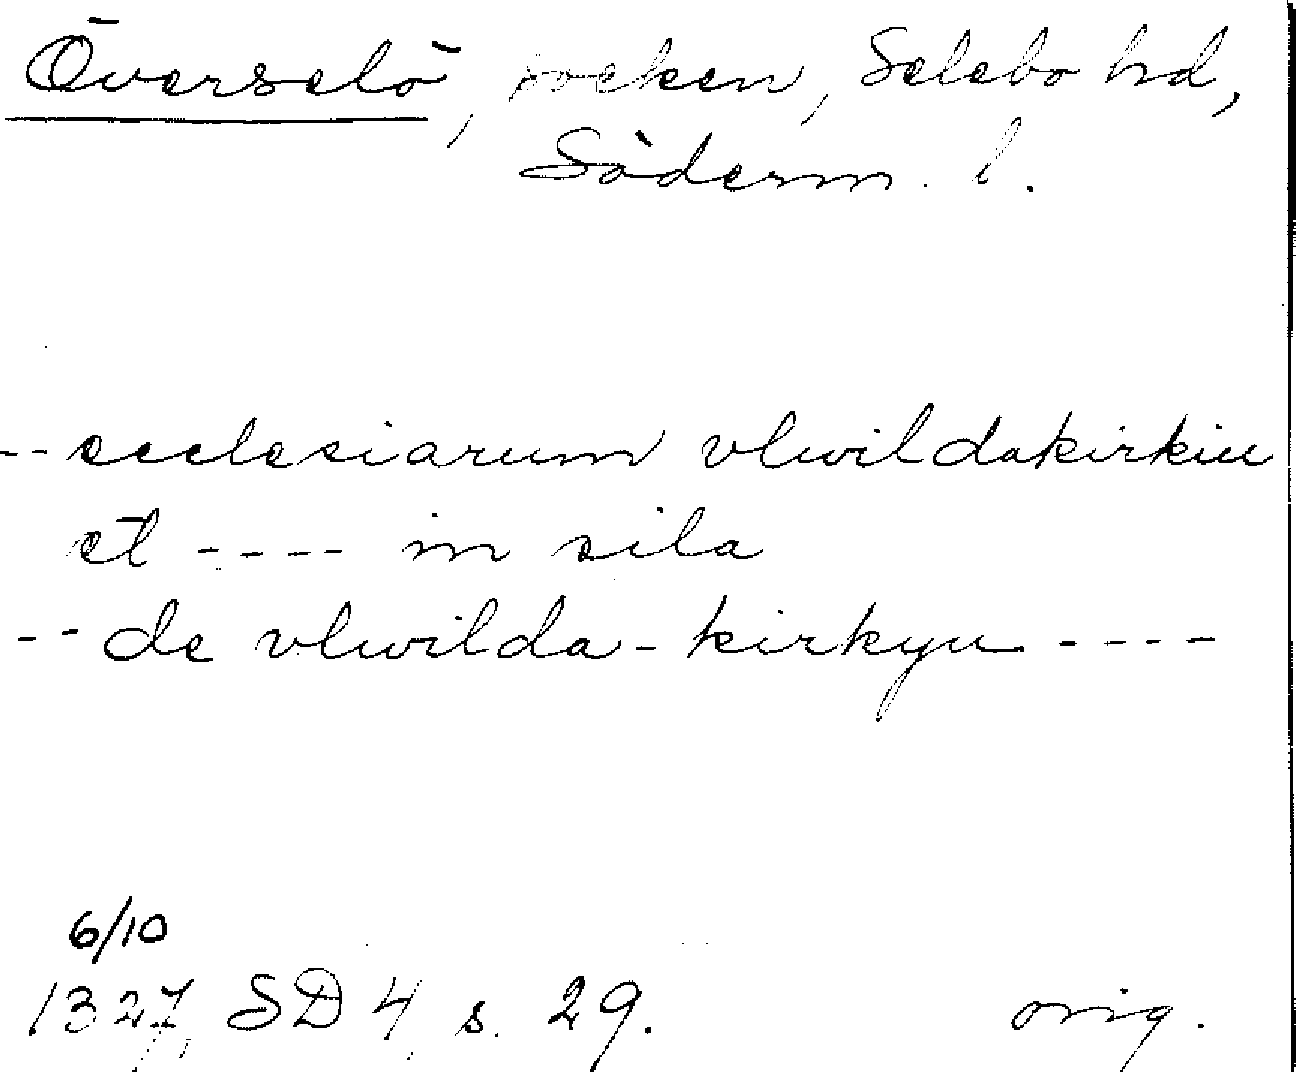 Överselö, socken, Selebo hd,
Söderm. l.
-- ecclesiarum vlwildakirkiu
et ---- in sila
-- de vlwilda-kirkyu ----
6/10
1327, SD 4 s. 29. orig.